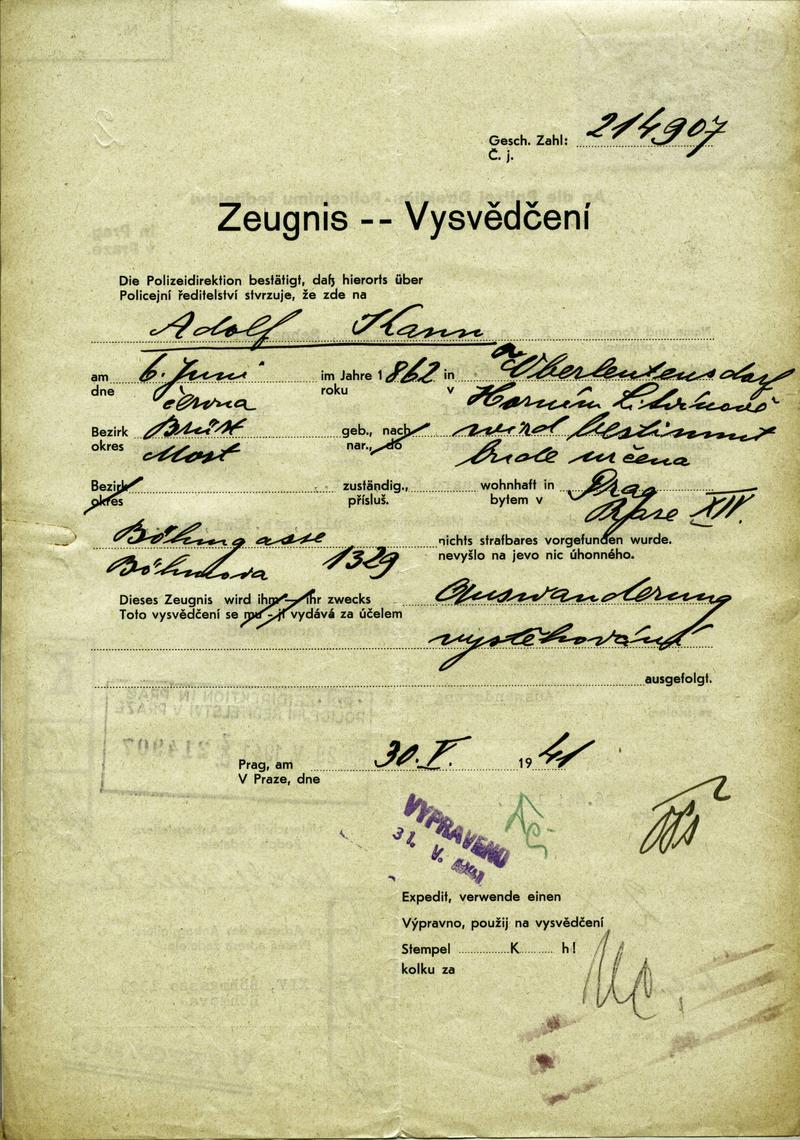 Gesch. Zahl: 214907
Č. j.
Zeugnis -- Vysvědčení
Die Polizeidirektion bestätigt, daß hierorts über
Policejní ředitelství stvrzuje, že zde na
Adolf Kann
am 6. Juni im Jahre 1862 in Oberleutensdorf
dne června roku v Horním Litvínově
Bezirk Brüx geb., nach wird bestimmt
okres Most nar., do bude určena
Bezirk zuständig., wohnhaft in Prag
okres přísluš. bytem v Praze XIV.
Böhmgasse nichts strafbares vorgefunden wurde.
Böhmova 1329 nevyšlo na jevo nic úhonného.
Dieses Zeugnis wird ihm — ihr zwecks Auswanderung
Toto vysvědčení se mu - jí vydává za účelem
vystěhování
ausgefolgt.
Prag, am 30. V. 1941
V Praze, dne
VYPRAVENO
31. V. 1941
Expedit, verwende einen
Výpravno, použij na vysvědčení
Stempel K hl
kolku za